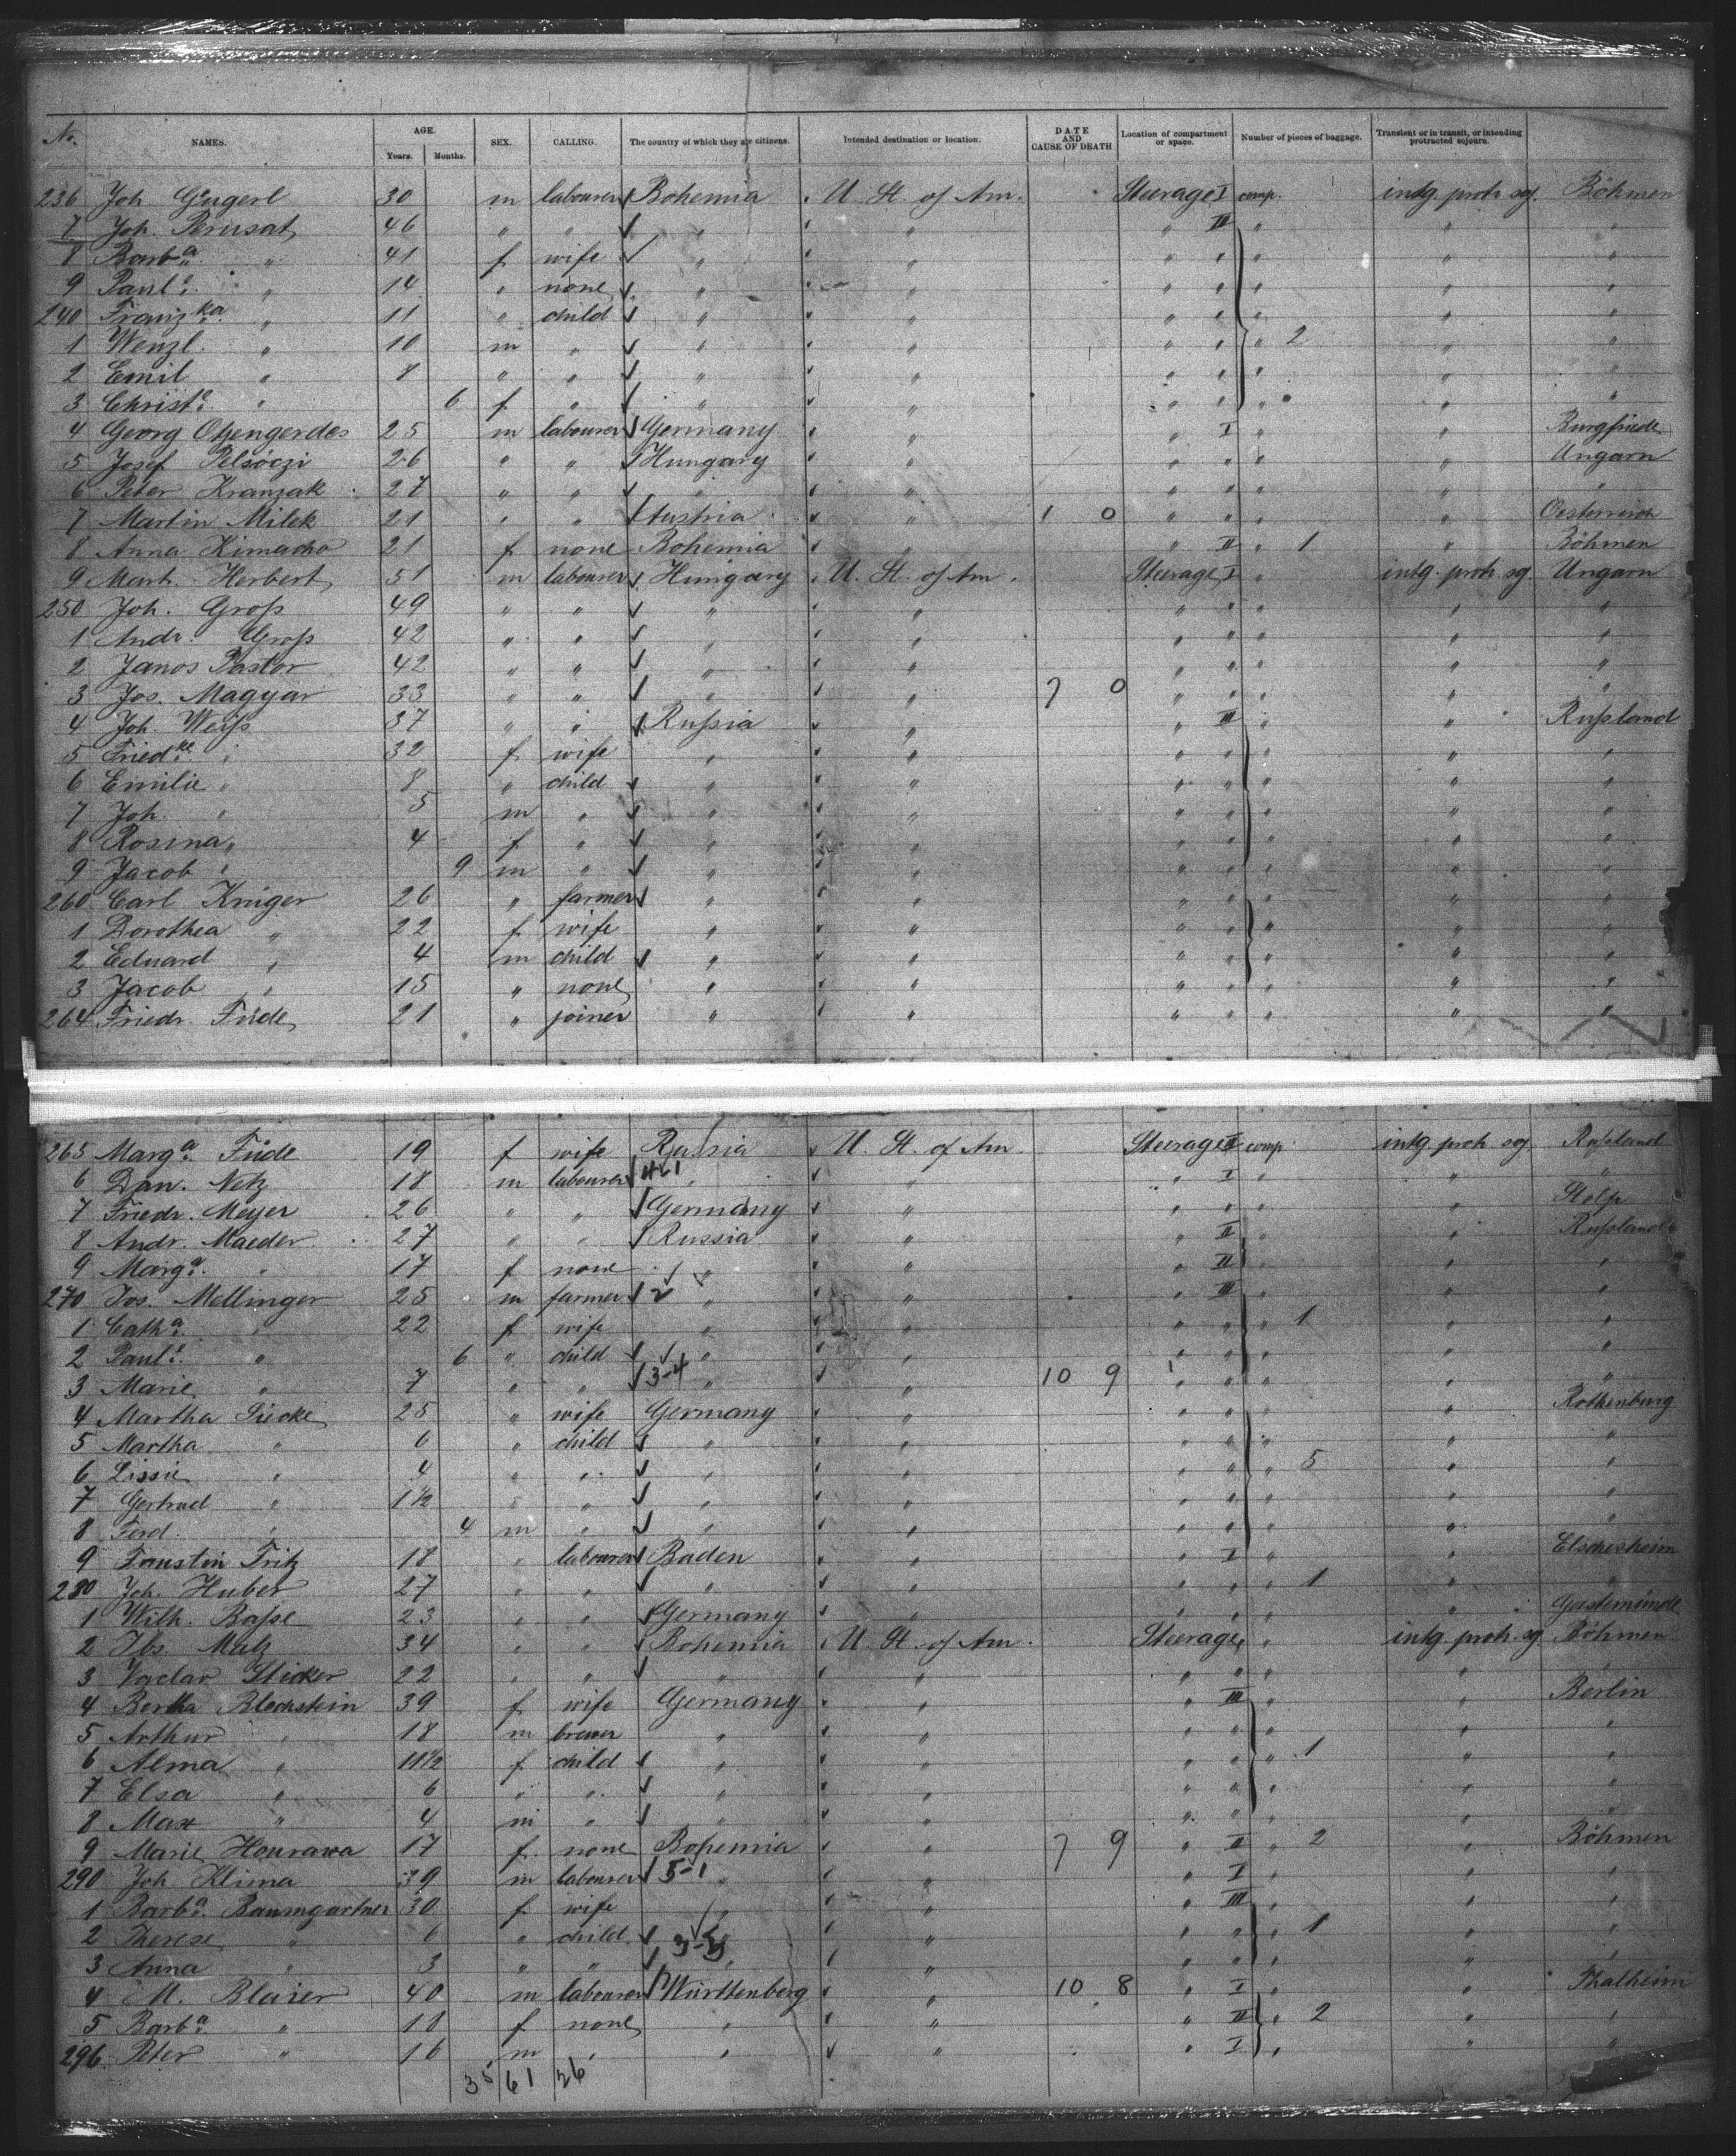 No. NAMES. AGE. Years. Months. SEX. CALLING. The country of which they are citizens. Intended destination or location. DATE AND CAUSE OF DEATH Location of compartment or space. Number of pieces of baggage. Transient or in transit, or intending protracted sojourn.
236 Joh Gingerl 30 m labourer Bohemia U. St. of Am. Steerage I comp. intg. protr. sg. Böhmen
7 Joh. Perusat 46 " " " " " III " " "
8 Barba. " 41 f wife " " " " " " "
9 Paule. " 14 " none " " " " " " "
240 Franzka. " 11 " child " " " " " " "
1 Wenzl. " 10 m " " " " " " 2 " "
2 Emil " 8 " " " " " " " " "
3 Christe. " 6 f " " " " " " " "
4 Georg Otjengerdes 25 m labourer Germany " " I " " Burgfriede
5 Josef Pelsóczi 26 " " Hungary " " " " " Ungarn
6 Peter Kranzak 27 " " " " " " " " "
7 Martin Milek 21 " " Austria " 1 0 " " " " Oesterreich
8 Anna Kimacho 21 f none Bohemia " " II " 1 " Böhmen
9 Mart. Herbert 51 m labourer Hungary U. St. of Am. Steerage I " intg. protr. sg. Ungarn
250 Joh. Groß 49 " " " " " " " " "
1 Andr. Groß 42 " " " " " " " " "
2 Janos Pastor 42 " " " " " " " " "
3 Jos. Magyar 33 " " " " 7 0 " " " " "
4 Joh. Weiß 37 " " Rußia " " III " " Rußland
5 Friedke. " 32 f wife " " " " " " "
6 Emilie " 8 " child " " " " " " "
7 Joh. " 5 m " " " " " " " "
8 Rosina " 4 f " " " " " " " "
9 Jacob " 9 m " " " " " " " "
260 Carl Krüger 26 " farmer " " " " " " "
1 Dorothea " 22 f wife " " " " " " "
2 Eduard " 4 m child " " " " " " "
3 Jacob " 15 " none " " " " " " "
264 Friedr. Füde 21 " joiner " " " " " " "
265 Marga. Füde 19 f wife Rußia U. St. of Am Steerage II comp intg. protr. sg. Rußland
6 Dan. Netz 18 m labourer " " " I " " "
7 Friedr. Meyer 26 " " Germany " " " " " Stolp
8 Andr. Maeder 27 " " Russia " " II " " Rußland
9 Marga. " 17 f none " " " II " " "
270 Jos. Mellinger 25 m farmer 2 " " " III " " "
1 Catha. " 22 f wife " " " " " 1 " "
2 Paule. " 6 " child " " " " " " "
3 Marie " 7 " " 3-4 " " 10 9 " " " " "
4 Martha Fiecke 25 " wife Germany " " " " " Rothenburg
5 Martha " 6 " child " " " " " " "
6 Lissie " 4 " " " " " " " 5 " "
7 Gertrud " 1½ " " " " " " " " "
8 Ferd. " 4 m " " " " " " " "
9 Faustin Fritz 18 " labourer Baden " " I " " Elschesheim
280 Joh. Huber 27 " " " " " " " 1 " "
1 Wilh. Baße 23 " " Germany " " " " " Geestemünde
2 Jos. Malz 34 " " Bohemia U. St. of Am. Steerage " " intg. protr. sg. Böhmen
3 Vaclav Sticker 22 " " " " " " " " "
4 Bertha Blechstein 39 f wife Germany " " III " " Berlin
5 Arthur " 18 m brewer " " " " " " "
6 Alma " 11½ f child " " " " " 1 " "
7 Elsa " 6 " " " " " " " " "
8 Max " 4 m " " " " " " " "
9 Marie Hourawa 17 f. none Bohemia " 7 9 " II " 2 " Böhmen
290 Joh Klima 39 m labourer 5-1 " " " I " " "
1 Barba. Baumgartner 30 f. wife " " " III " " "
2 Therese " 6 " child " " " " " 1 " "
3 Anna " 3 " " " " " " " " "
4 M. Blaier 40 m labourer Württenberg " 10 8 " I " " Thalheim
5 Barba. " 18 f none " " " II " 2 " "
296 Peter " 16 m " " " " I " " "
35 61 26